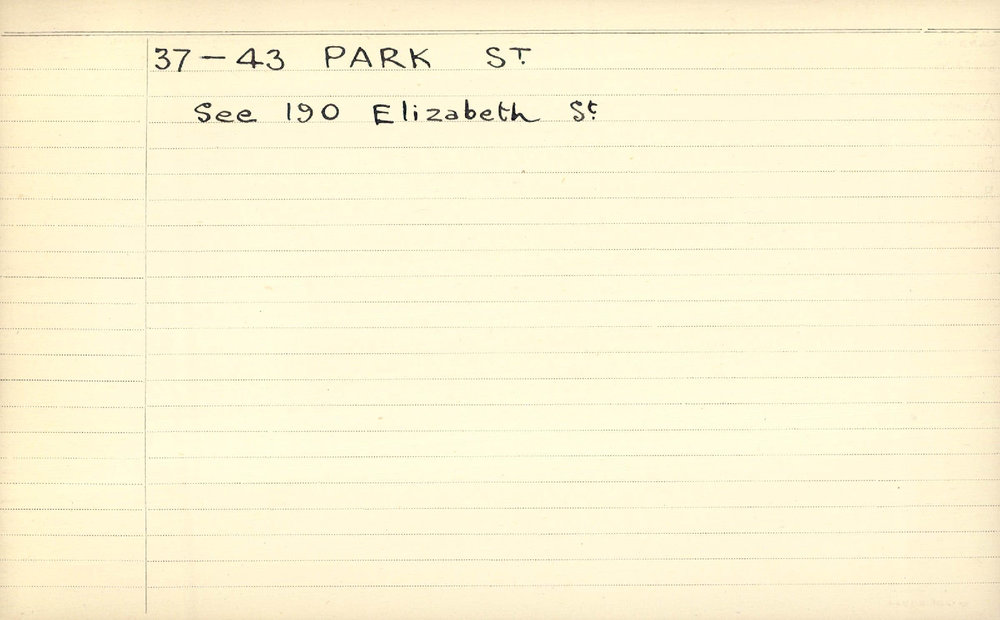 37 – 43 PARK ST.
See 190 Elizabeth St.